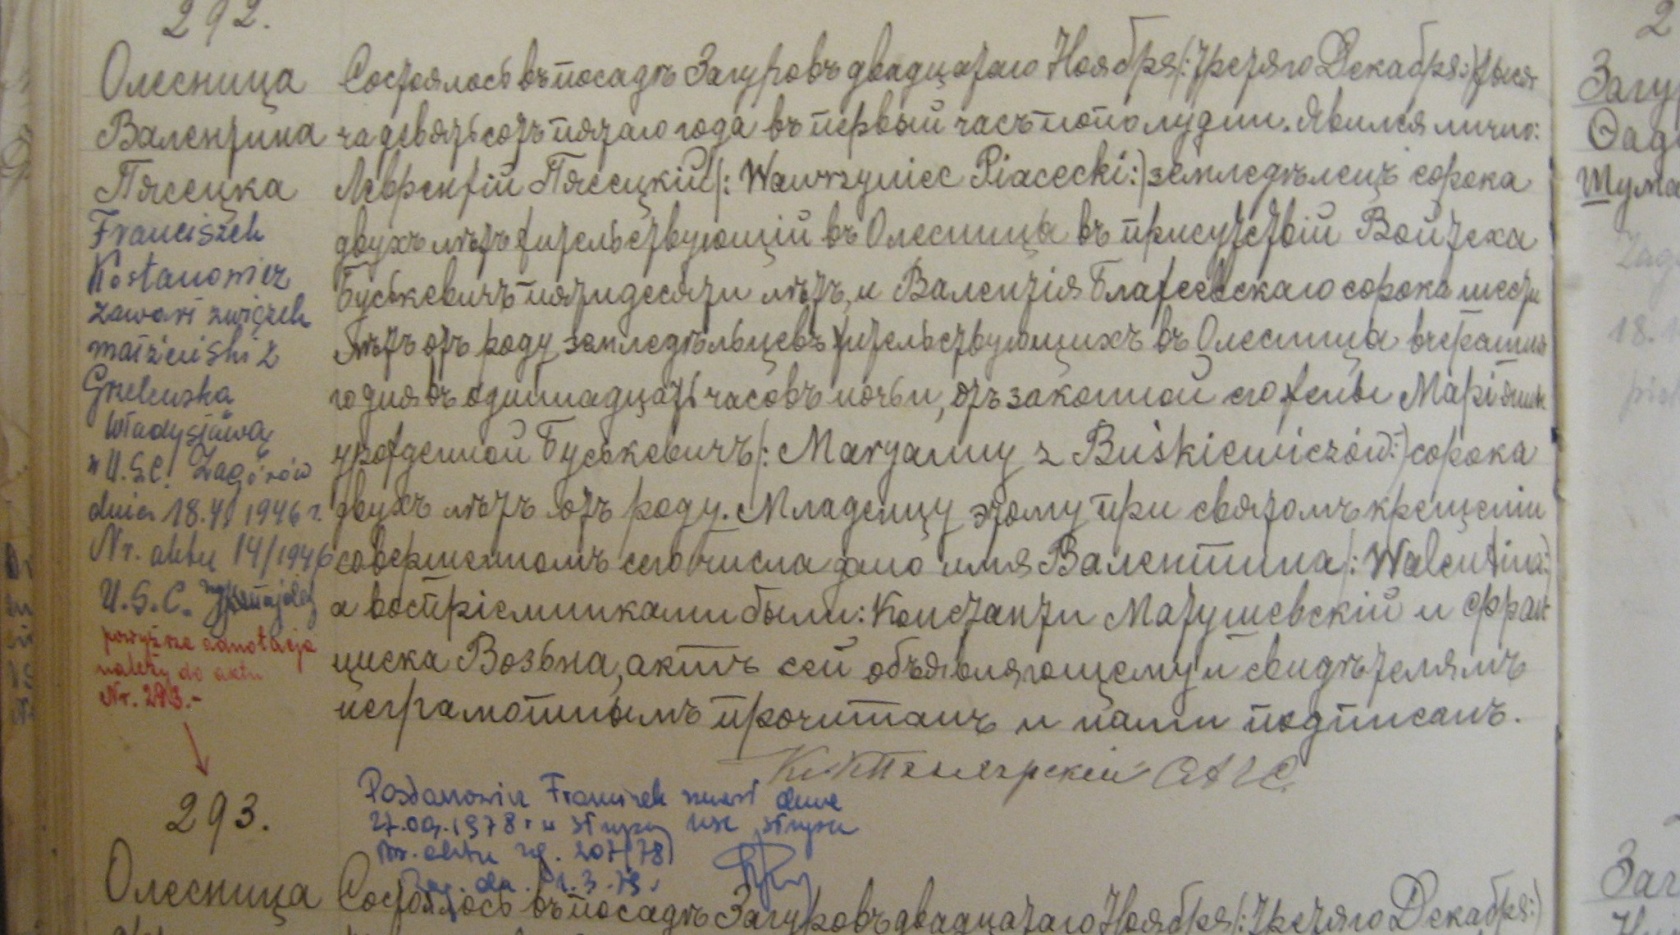 292.
Олесница
Валентина
Пясецка
Franciszek
zawarł związek
małżeński z
Władysławą
w U.S.C. Zagórów
dnia 18.VI 1946 r.
Nr. aktu 14/1946
U.S.C.
powyższa adnotacja
należy do aktu
Nr. 293.-
Состоялось въ посадѣ Загуровъ двадцатаго Ноября /: третяго Декабря :/ тыся
ча девятьсотъ пятаго года въ первый часъ по полудни. Явился лично:
Лаврентій Пясецкій /: Wawrzyniec Piasecki :/ земледѣлецъ сорока
двухъ лѣтъ жительствующій въ Олесница въ присутствій Войтеха
Буськевичъ пятидесяти лѣтъ, и Валентія Блажеевскаго сорока шести
лѣтъ отъ роду земледѣльцевъ жительствующихъ въ Олесница вчерашня
го дня въ одиннадцать часовъ ночьи, отъ законной его жены Маріянны
урожденной Буськевичъ /: Maryanny z Buśkiewiczów :/ сорока
двухъ лѣтъ отъ роду. Младенцу этому при святомъ крещеніи
совершенномъ сего числа дано имя Валентина /: Walentina :/
а воспріемниками были: Константи Матушевскій и Фран
циска Возьна, актъ сей объявляющему и свидѣтелямъ
неграмотнымъ прочитанъ и нами подписанъ.
293.
Franciszek zmarł dnia
27.09.1978 r. w Słupcy USC Słupca
Nr. aktu zg. 207/78
Олесница
Состоялось въ посадѣ Загуровъ двадцатаго Ноября /: третяго Декабря :/
2